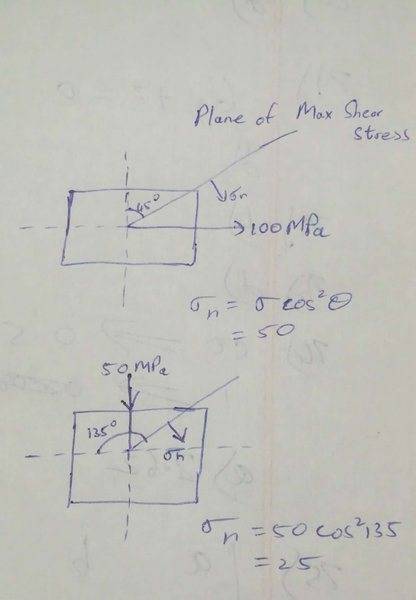 Plane of Max Shear
Stress
45°
σn
100MPa
σn = σ cos²θ
= 50
50 MPa
135°
σn
σn = 50 cos²135
= 25